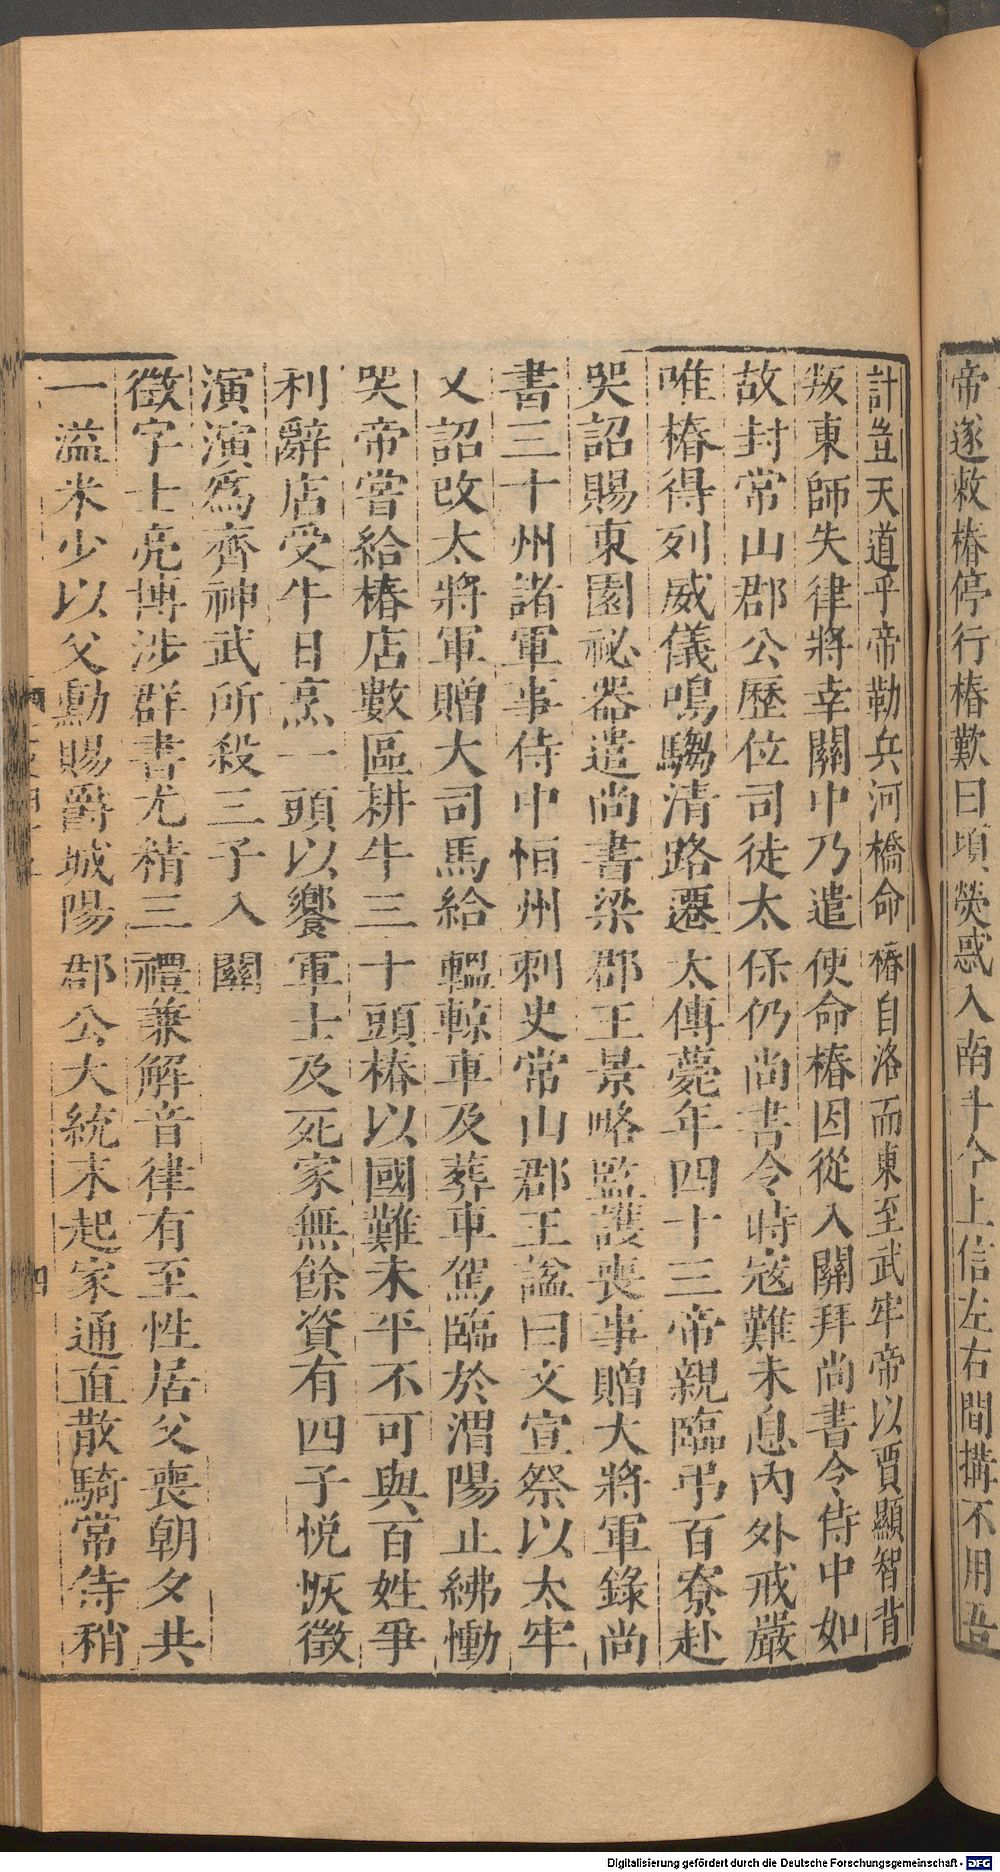 帝遂敕椿停行椿歎曰頃熒惑入南斗今上信左右間搆不用吾
計豈天道乎帝勒兵河橋命椿自洛而東至武牢帝以賈顯智背
叛東師失律將幸關中乃遣使命椿因從入關拜尚書令侍中如
故封常山郡公歷位司徒太保仍尚書令時寇難未息內外戒嚴
唯椿得列威儀鳴騶清路遷太傅薨年四十三帝親臨弔百寮赴
哭詔賜東園祕器遣尚書梁郡王景略監護喪事贈大將軍錄尚
書三十州諸軍事侍中恒州刺史常山郡王諡曰文宣祭以太牢
又詔改太將軍贈大司馬給轀輬車及葬車駕臨於渭陽止紼慟
哭帝嘗給椿店數區耕牛三十頭椿以國難未平不可與百姓爭
利辭店受牛日烹一頭以饗軍士及死家無餘資有四子悅恢徵
演演爲齊神武所殺三子入關
徵字士亮博涉群書尤精三禮兼解音律有至性居父喪朝夕共
一溢米少以父勳賜爵城陽郡公大統末起家通直散騎常侍稍
四
Digitalisierung gefördert durch die Deutsche Forschungsgemeinschaft - DFG